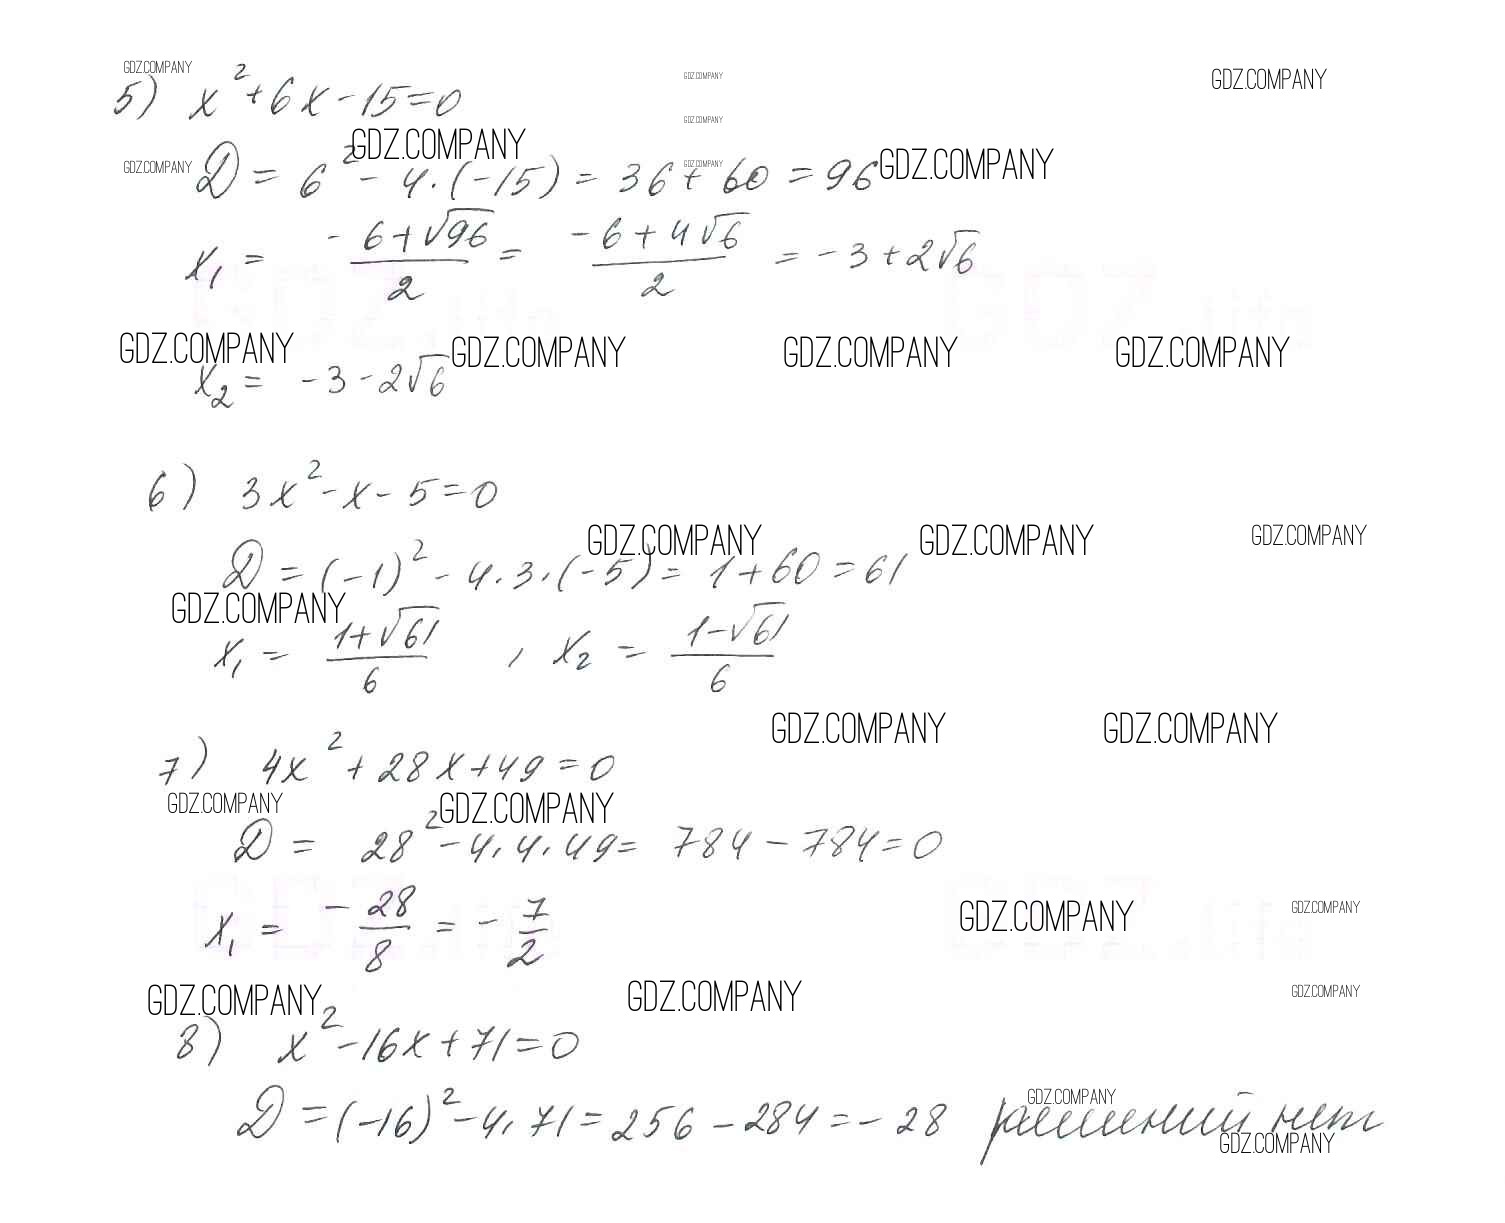 GDZ.COMPANY GDZ.COMPANY GDZ.COMPANY
5) x²+6x-15=0
GDZ.COMPANY
GDZ.COMPANY GDZ.COMPANY GDZ.COMPANY GDZ.COMPANY
D = 6² - 4·(-15) = 36 + 60 = 96
x₁ = (-6+√96)/2 = (-6+4√6)/2 = -3+2√6
GDZ.COMPANY GDZ.COMPANY GDZ.COMPANY GDZ.COMPANY
x₂ = -3-2√6
6) 3x²-x-5=0
GDZ.COMPANY GDZ.COMPANY GDZ.COMPANY
D = (-1)² - 4·3·(-5) = 1+60=61
GDZ.COMPANY
x₁ = (1+√61)/6 , x₂ = (1-√61)/6
GDZ.COMPANY GDZ.COMPANY
7) 4x²+28x+49=0
GDZ.COMPANY GDZ.COMPANY
D = 28²-4·4·49= 784-784=0
x₁ = -28/8 = -7/2
GDZ.COMPANY GDZ.COMPANY
GDZ.COMPANY GDZ.COMPANY GDZ.COMPANY
8) x²-16x+71=0
GDZ.COMPANY
D =(-16)²-4·71=256-284=-28 решений нет
GDZ.COMPANY